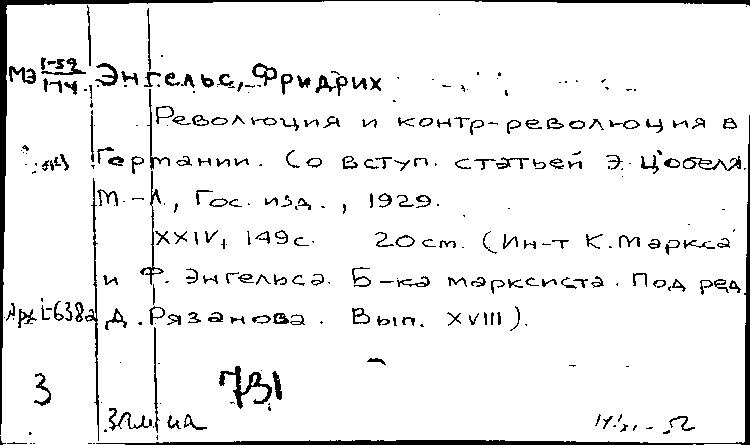 Мэ 1-59 Энгельс, Фридрих
1-74
Революция и контр-революция в
Германии. Со вступ. статьей Э. Цобеля.
М.-Л., Гос. изд., 1929.
XXIV, 149с. 20см. (Ин-т К. Маркса
и Ф. Энгельса. Б-ка марксиста. Под ред.
Арх L-638а Д. Рязанова. Вып. XVIII).
3 731